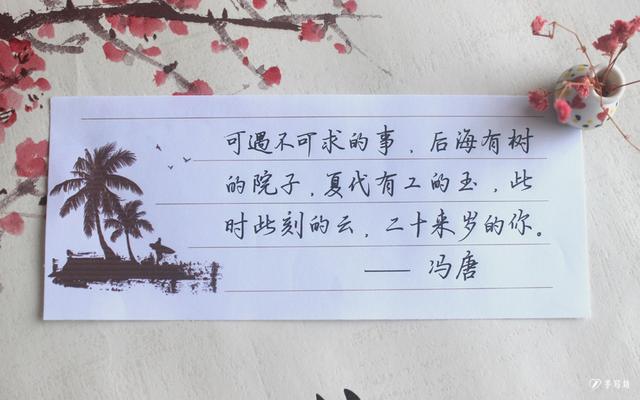 可遇不可求的事，后海有树
的院子，夏代有工的玉，此
时此刻的云，二十来岁的你。
—— 冯唐
手写馆